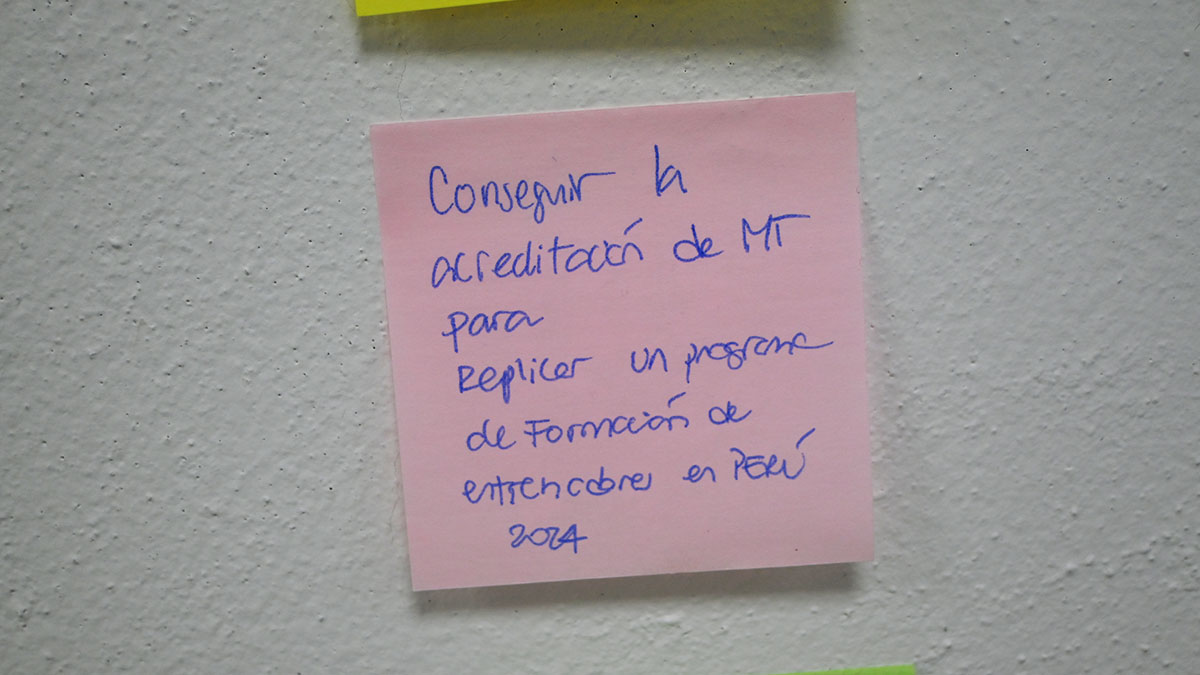 Conseguir la
acreditación de MT
para
Replicar un programa
de Formación de
entrenadores en PERÚ
2024